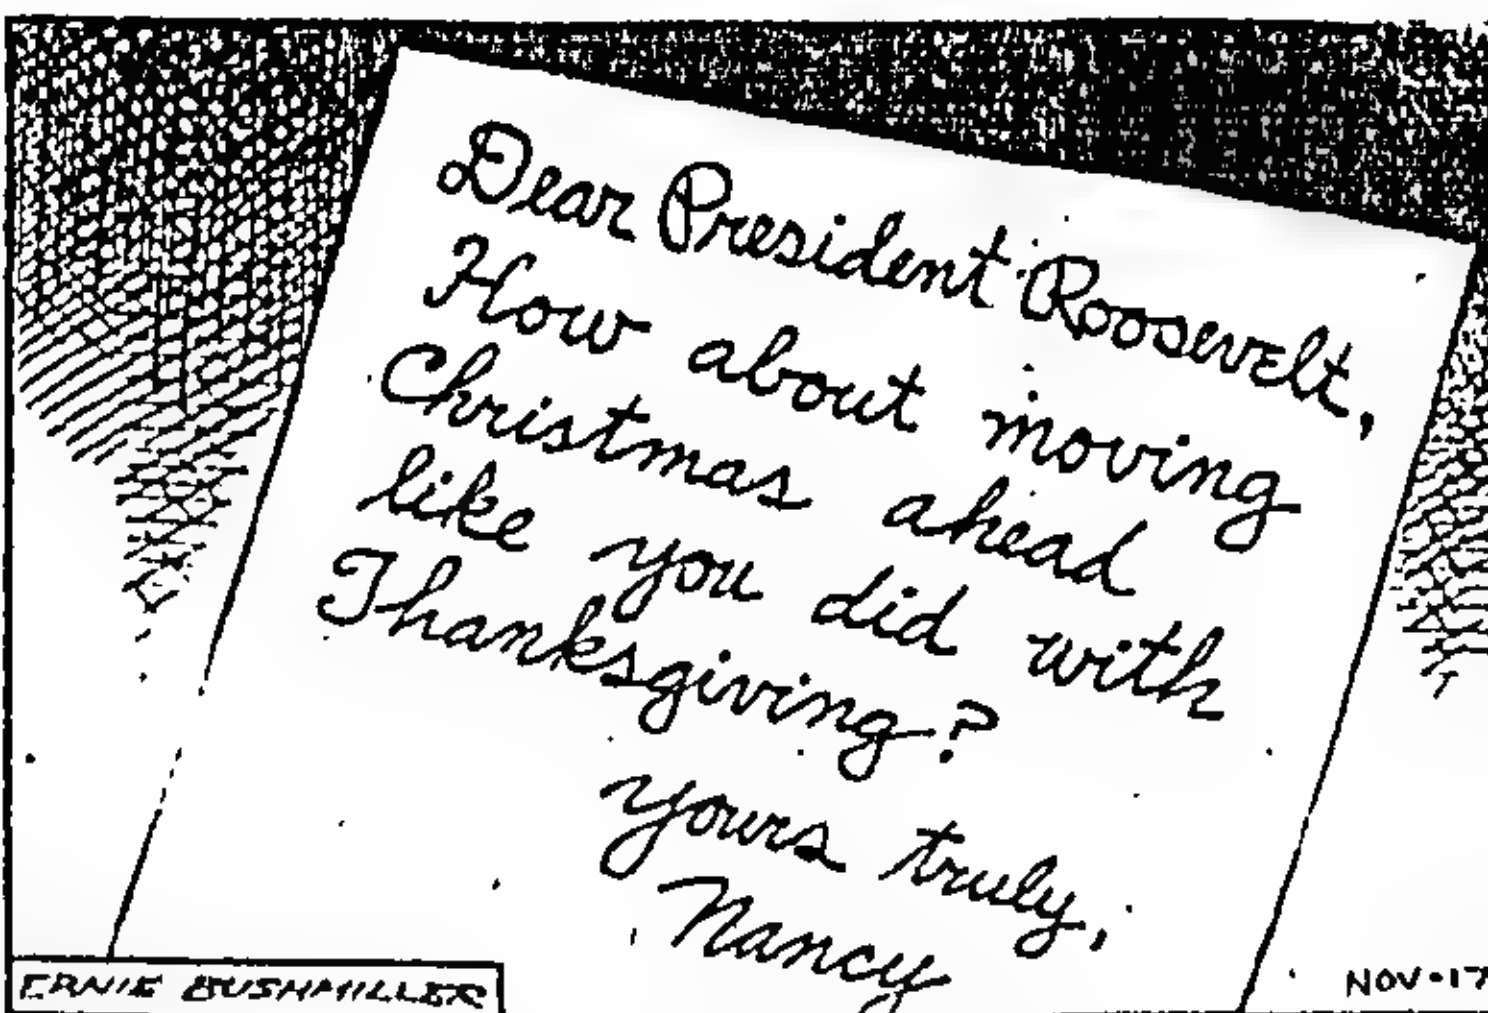 Dear President Roosevelt,
How about moving
Christmas ahead
like you did with
Thanksgiving?
yours truly,
Nancy
ERNIE BUSHMILLER
NOV•17